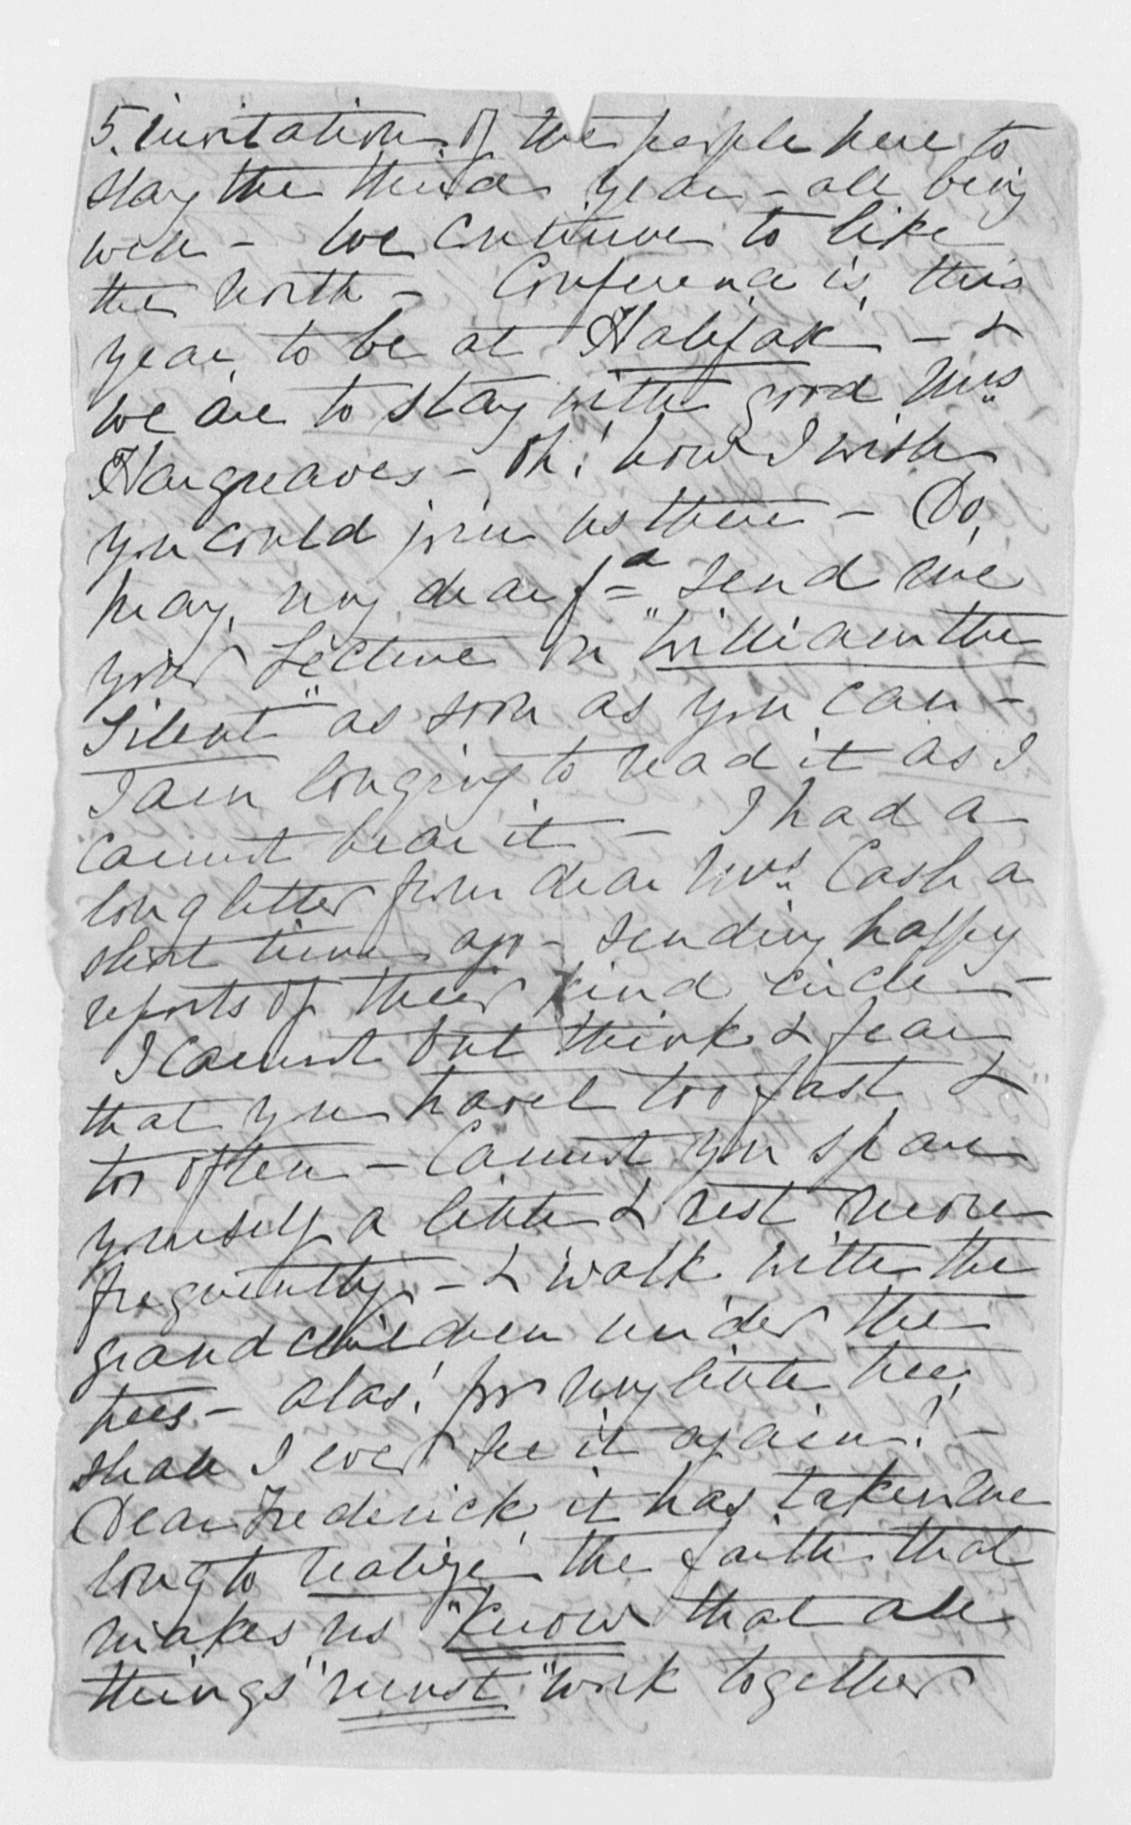 5. invitation of the people here to
stay the third year - all being
well - We continue to like
the North - Conference is this
year to be at Halifax - &
we are to stay with good Mrs
Hargreaves - Oh! how I wish
you could join us there - Do,
pray, my dear fd send me
your Lecture on "William the
Silent" as soon as you can -
I am longing to read it as I
cannot hear it - I had a
long letter from dear Mrs. Cash a
short time ago - sending happy
reports of their kind circle -
I cannot but think & fear
that you travel too fast &
too often - Cannot you spare
yourself a little & rest more
frequently - & walk with the
grandchildren under the
trees - alas! for my little tree,
shall I ever see it again! -
Dear Frederick, it has taken me
long to realize the faith that
makes us "know that all
things" must "work together